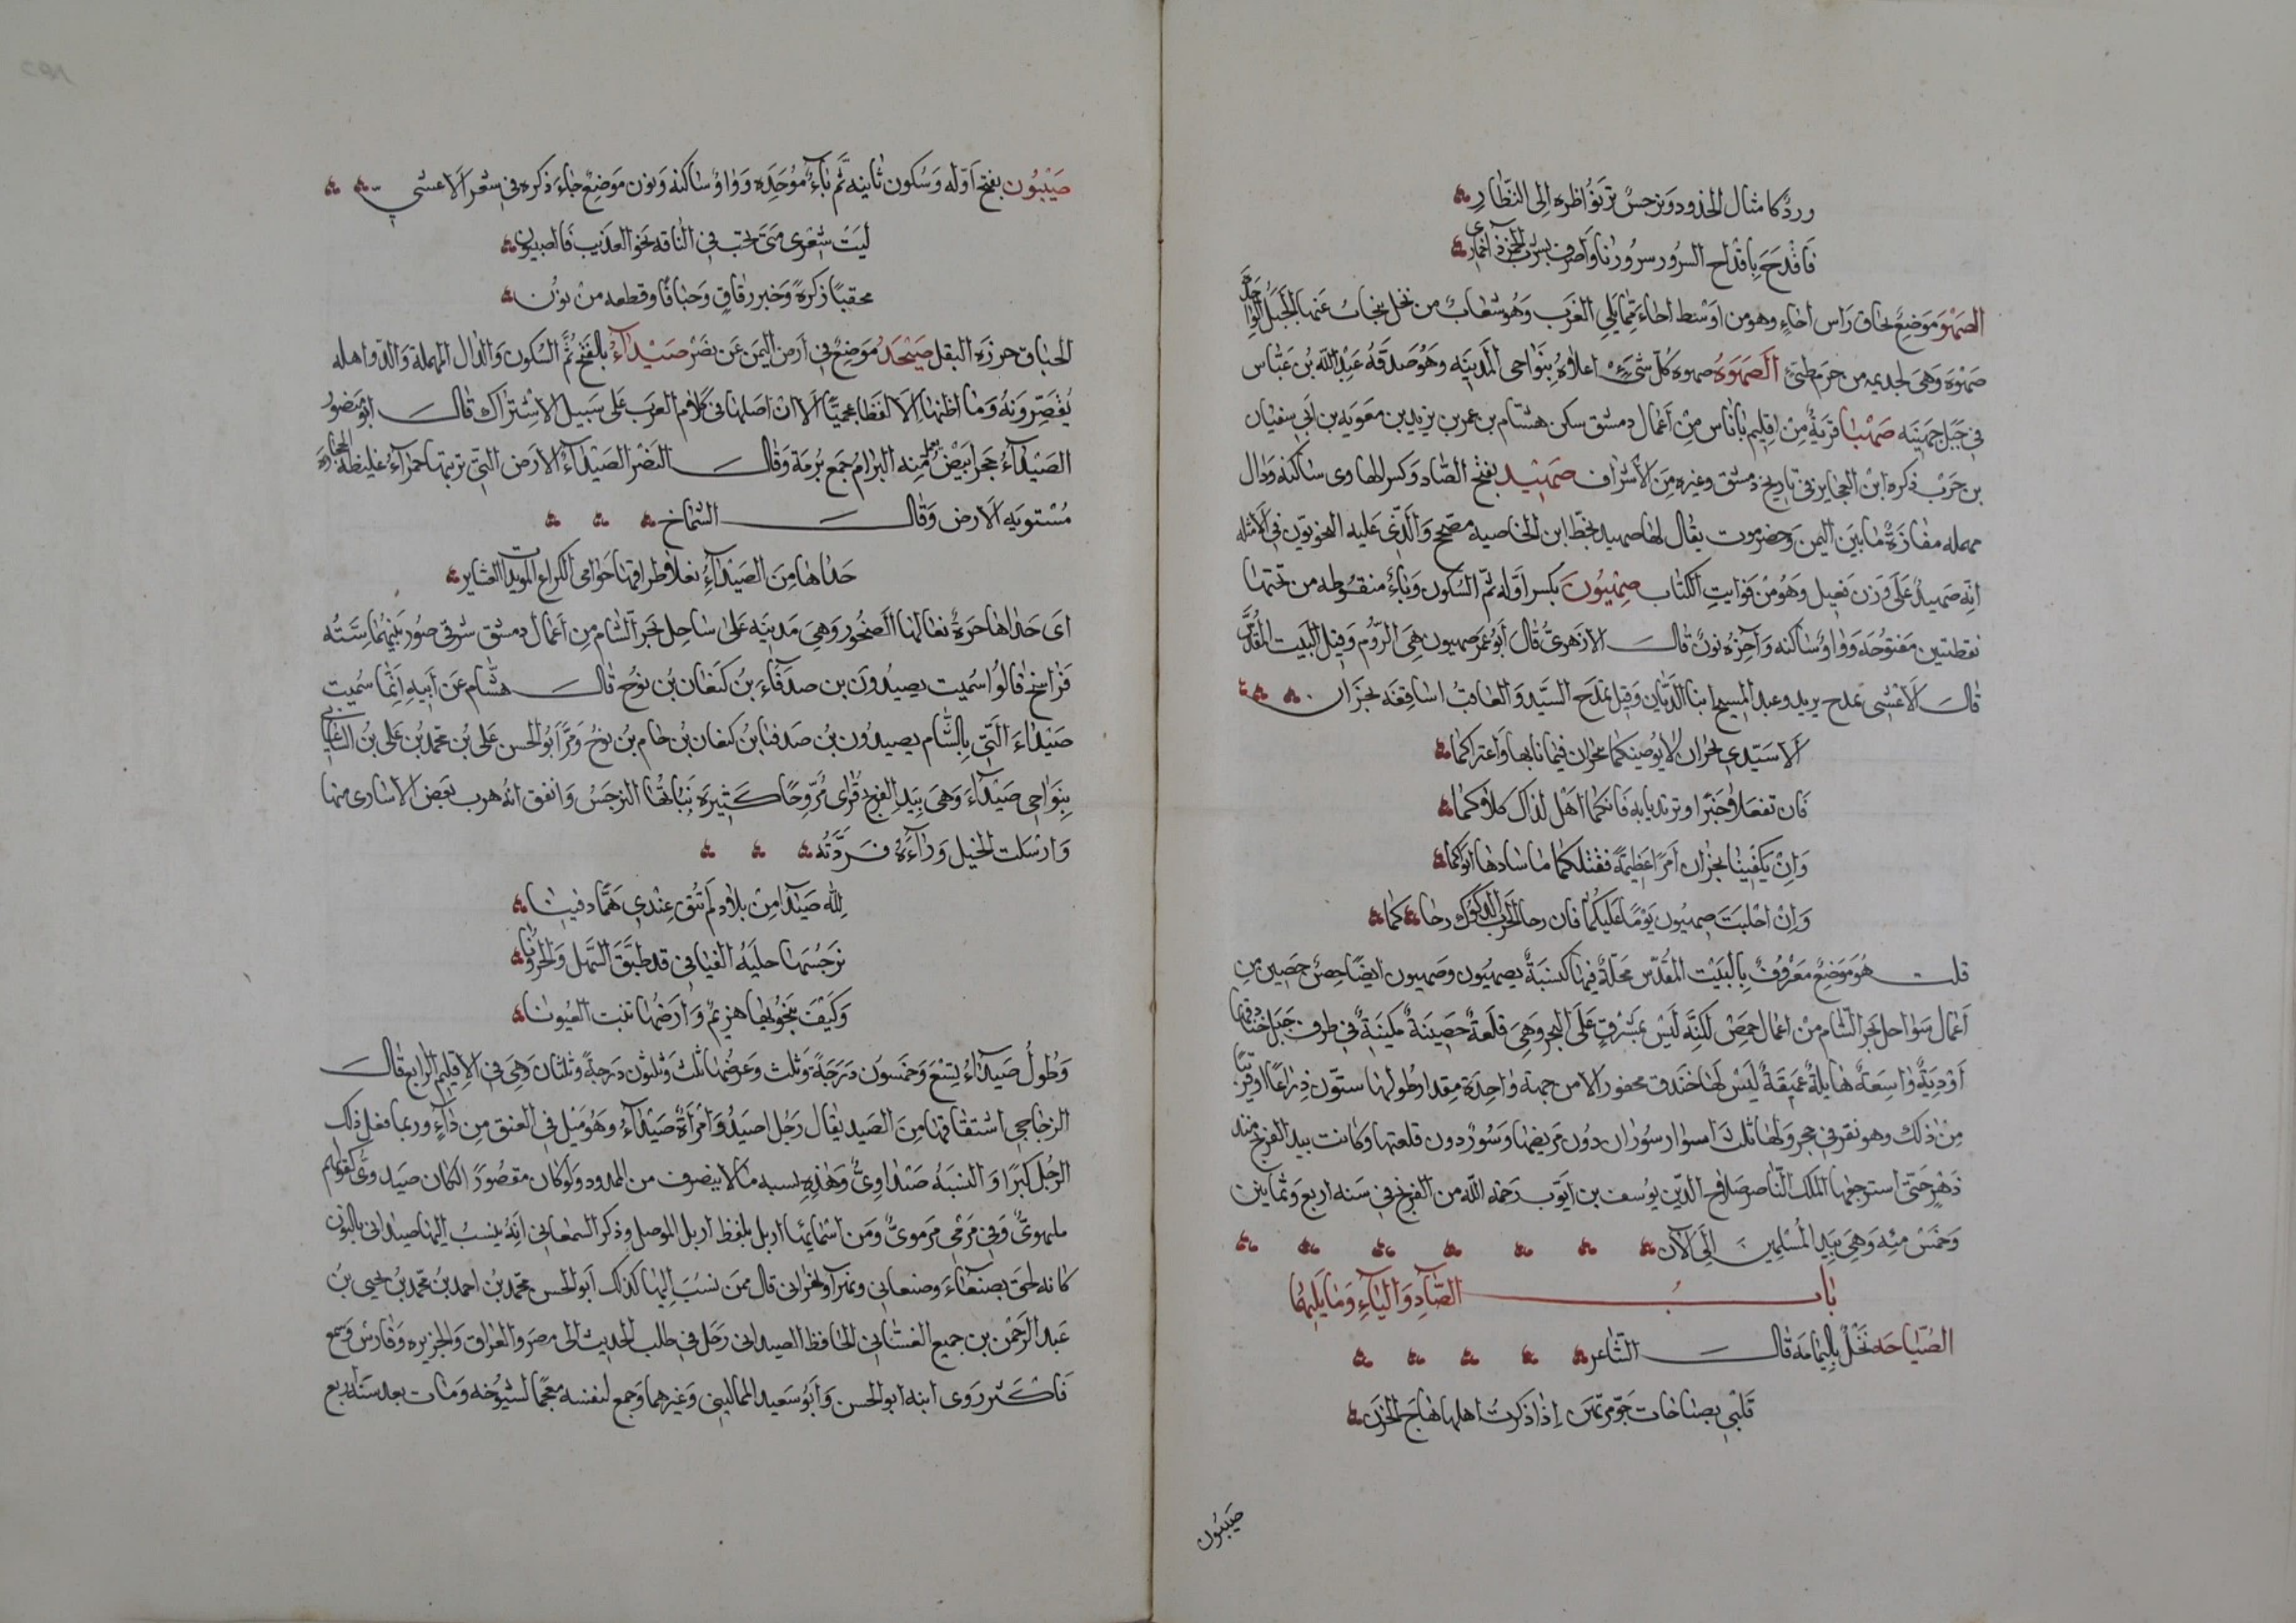 وردٌ كامثال الخدود ونرجسٌ ترنو نواظره الى النظارِ
فاقدح باقداح السرور سرورنا واصرف بشرب الخمر في اخماري
الصَّهْوَ مَوضِعٌ بحاق راس اجاءٍ وهو من اوسط اجاء مما يلي الغرب وهو شعابٌ من نخل ينجاب عنها الجبل الواحدة
صهوة وهي لجديمه من جرم طيّئ الصَّهوَة صهوة كل شيءٍ اعلاه بنواحي المدينه وهو صدقه عبد الله بن عباس
في جبل جهينه صهبا قريةٌ من اقليم باناس من اعمال دمشق سكن هشام بن عمر بن يزيد بن معويه بن ابي سفيان
بن حرب ذكره ابن العجايز في تاريخ دمشق وغيره من الاشراف صَهيد بفتح الصاد وكسر الها وى ساكنه ودال
مهمله مفازةٌ ما بين اليمن وحضرموت يقال لها صهيد بخط ابن الخاصبه مصحح والذي عليه النحويون في الامثله
انه صهيدٌ على وزن فعيل وهو من فوايت الكتاب صِهيُون بكسر اوله ثم السكون وياءٌ منقوطه من تحتها
نقطتين مفتوحه وواوٌ ساكنه وآخره نونٌ قال الازهري قال ابو عمر صهيون هي الروم وقيل البيت المقدّس
قال الاعشى يمدح يزيد وعبد المسيح ابنا الديان وقيل يمدح السيد والعاقب اساقفة نجران
الا سيدي نجران لا يوصينكما نجران فيما نابها واعتراكما
فان تفعلا خيرًا وترتديا به فانكما اهل لذاك كلاكما
وان يكفينا نجران امرًا عظيمةً فقبلكما ما سادها ابواكما
وان اجلبت صهيون يومًا عليكما فان رحا الحرب الدكوك رحاكما
قلت هو موضعٌ معروفٌ بالبيت المقدس محلةٌ فيها كنيسةٌ بصهيون وصهيون ايضًا حصن حصين من
اعمال سواحل بحر الشام من اعمال حمص لكنه ليس بمشرفٍ على البحر وهي قلعةٌ حصينةٌ مكينةٌ في طرف جبل خنادقها
اوديةٌ واسعةٌ هايلةٌ عميقةٌ ليس لها خندق محفور الا من جهة واحدة مقدار طولها ستون ذراعًا او قريبًا
من ذلك وهو نقر في حجر ولها ثلث اسوار سوران دون مربضها وسورٌ دون قلعتها وكانت بيد الفرنج منذ
دهرٍ حتى استرجعها الملك الناصر صلاح الدين يوسف بن ايوب رحمه الله من الفرنج في سنه اربع وثمانين
وخمس مئه وهي بيد المسلمين الى الآن
باب الصَّادِ وَاليَاءِ وَمَا يَلِيهُمَا
الصُّيَّاحه نخلٌ باليمامه قال الشاعر
قلبي بصياحات جوٍّ مرتهن اذا ذكرت اهلها هاج الحزن
صيبون
صَيْبُون بفتح اوّله وسكون ثانيه ثم باءٌ موحّده وواوٌ ساكنه ونون موضعٌ جاء ذكره في شعر الاعشى
ليت شعري متى تخب في الناقه نحو العذيب فالصيبون
محقبًا ذكرةً وخبز رقاقٍ وحباقًا وقطعه من نون
الحباق جرزه البقل صَيْحَدُ موضعٌ في ارض اليمن عن نصر صَيْدَآءُ بالفتح ثم السكون والدال المهملة والمدّ واهله
يقصّرونه وما اظنها الا لفظا عجميًا الا ان اصلها في كلام العرب على سبيل الاشتراك قال ابو منصور
الصيدآءُ حجرٌ ابيض يعمل منه البرام جمع برمة وقال النضر الصيدآءُ الارض التي تربتها حمرآءُ غليظه الحجاره
مستويه الارض وقال الشماخ
حذاها من الصيدآءِ نعلا طراقها حوامي الكراع المويدات العشاير
اى حذاها حرةٌ نعالها الصخور وهي مدينه على ساحل بحر الشام من اعمال دمشق شرقي صور بينهما ستّه
فراسخ قالوا سميت بصيدون بن صدقاء بن كنعان بن نوح قال هشام عن ابيه انما سميت
صيداء التي بالشام بصيدون بن صدقنا بن كنعان بن حام بن نوح ومرّ ابو الحسن علي بن محمد بن علي بن الساعاتي
بنواحي صيدآء وهي بيد الفرنج فراى مروجًا كثيرة نباتُها النرجس واتفق انه هرب بعض الاسارى منها
وارسلت الخيل ورآءه فردَّته
لله صيدا من بلاد لم تبق عندي همًّا دفينا
نرجسها حليه الفيافي قد طبق السهل والحزونا
وكيف ينجو بها هزيمٌ وارضها تنبت العيونا
وطولُ صيدآء تسع وخمسون درجةً وثلث وعرضها ثلث وثلثون درجةً وثلثان وهي في الاقليم الرابع قال
الزجاجي اشتقاقها من الصيد يقال رجل اصيد وامرأةٌ صيدآءُ وهو ميل في العنق من دآءٍ وربما فعل ذلك
الرجل كبرًا والنسبة صيداويٌّ وهذه نسبه مالا ينصرف من الممدود ولو كان مقصورًا لكان صيدويٌّ كقولهم
ملهويٌّ وفي مرمى مرمويٌّ ومن اسمائها اربل بلفظ اربل الموصل وذكر السمعاني انه ينسب اليها صيداني بالنون
كانه لحق بصنعاء وصنعاني وبهرآ وبهراني قال ممن نسب اليها كذلك ابو الحسن محمد بن احمد بن محمد بن يحيى بن
عبد الرحمن بن جميع الغساني الحافظ الصيداني رحل في طلب الحديث الى مصر والعراق والجزيره وفارس وسمع
فاكثر روى ابنه ابو الحسن وابو سعيد الماليني وغيرهما وجمع لنفسه معجمًا لشيوخه ومات بعد سنه اربع